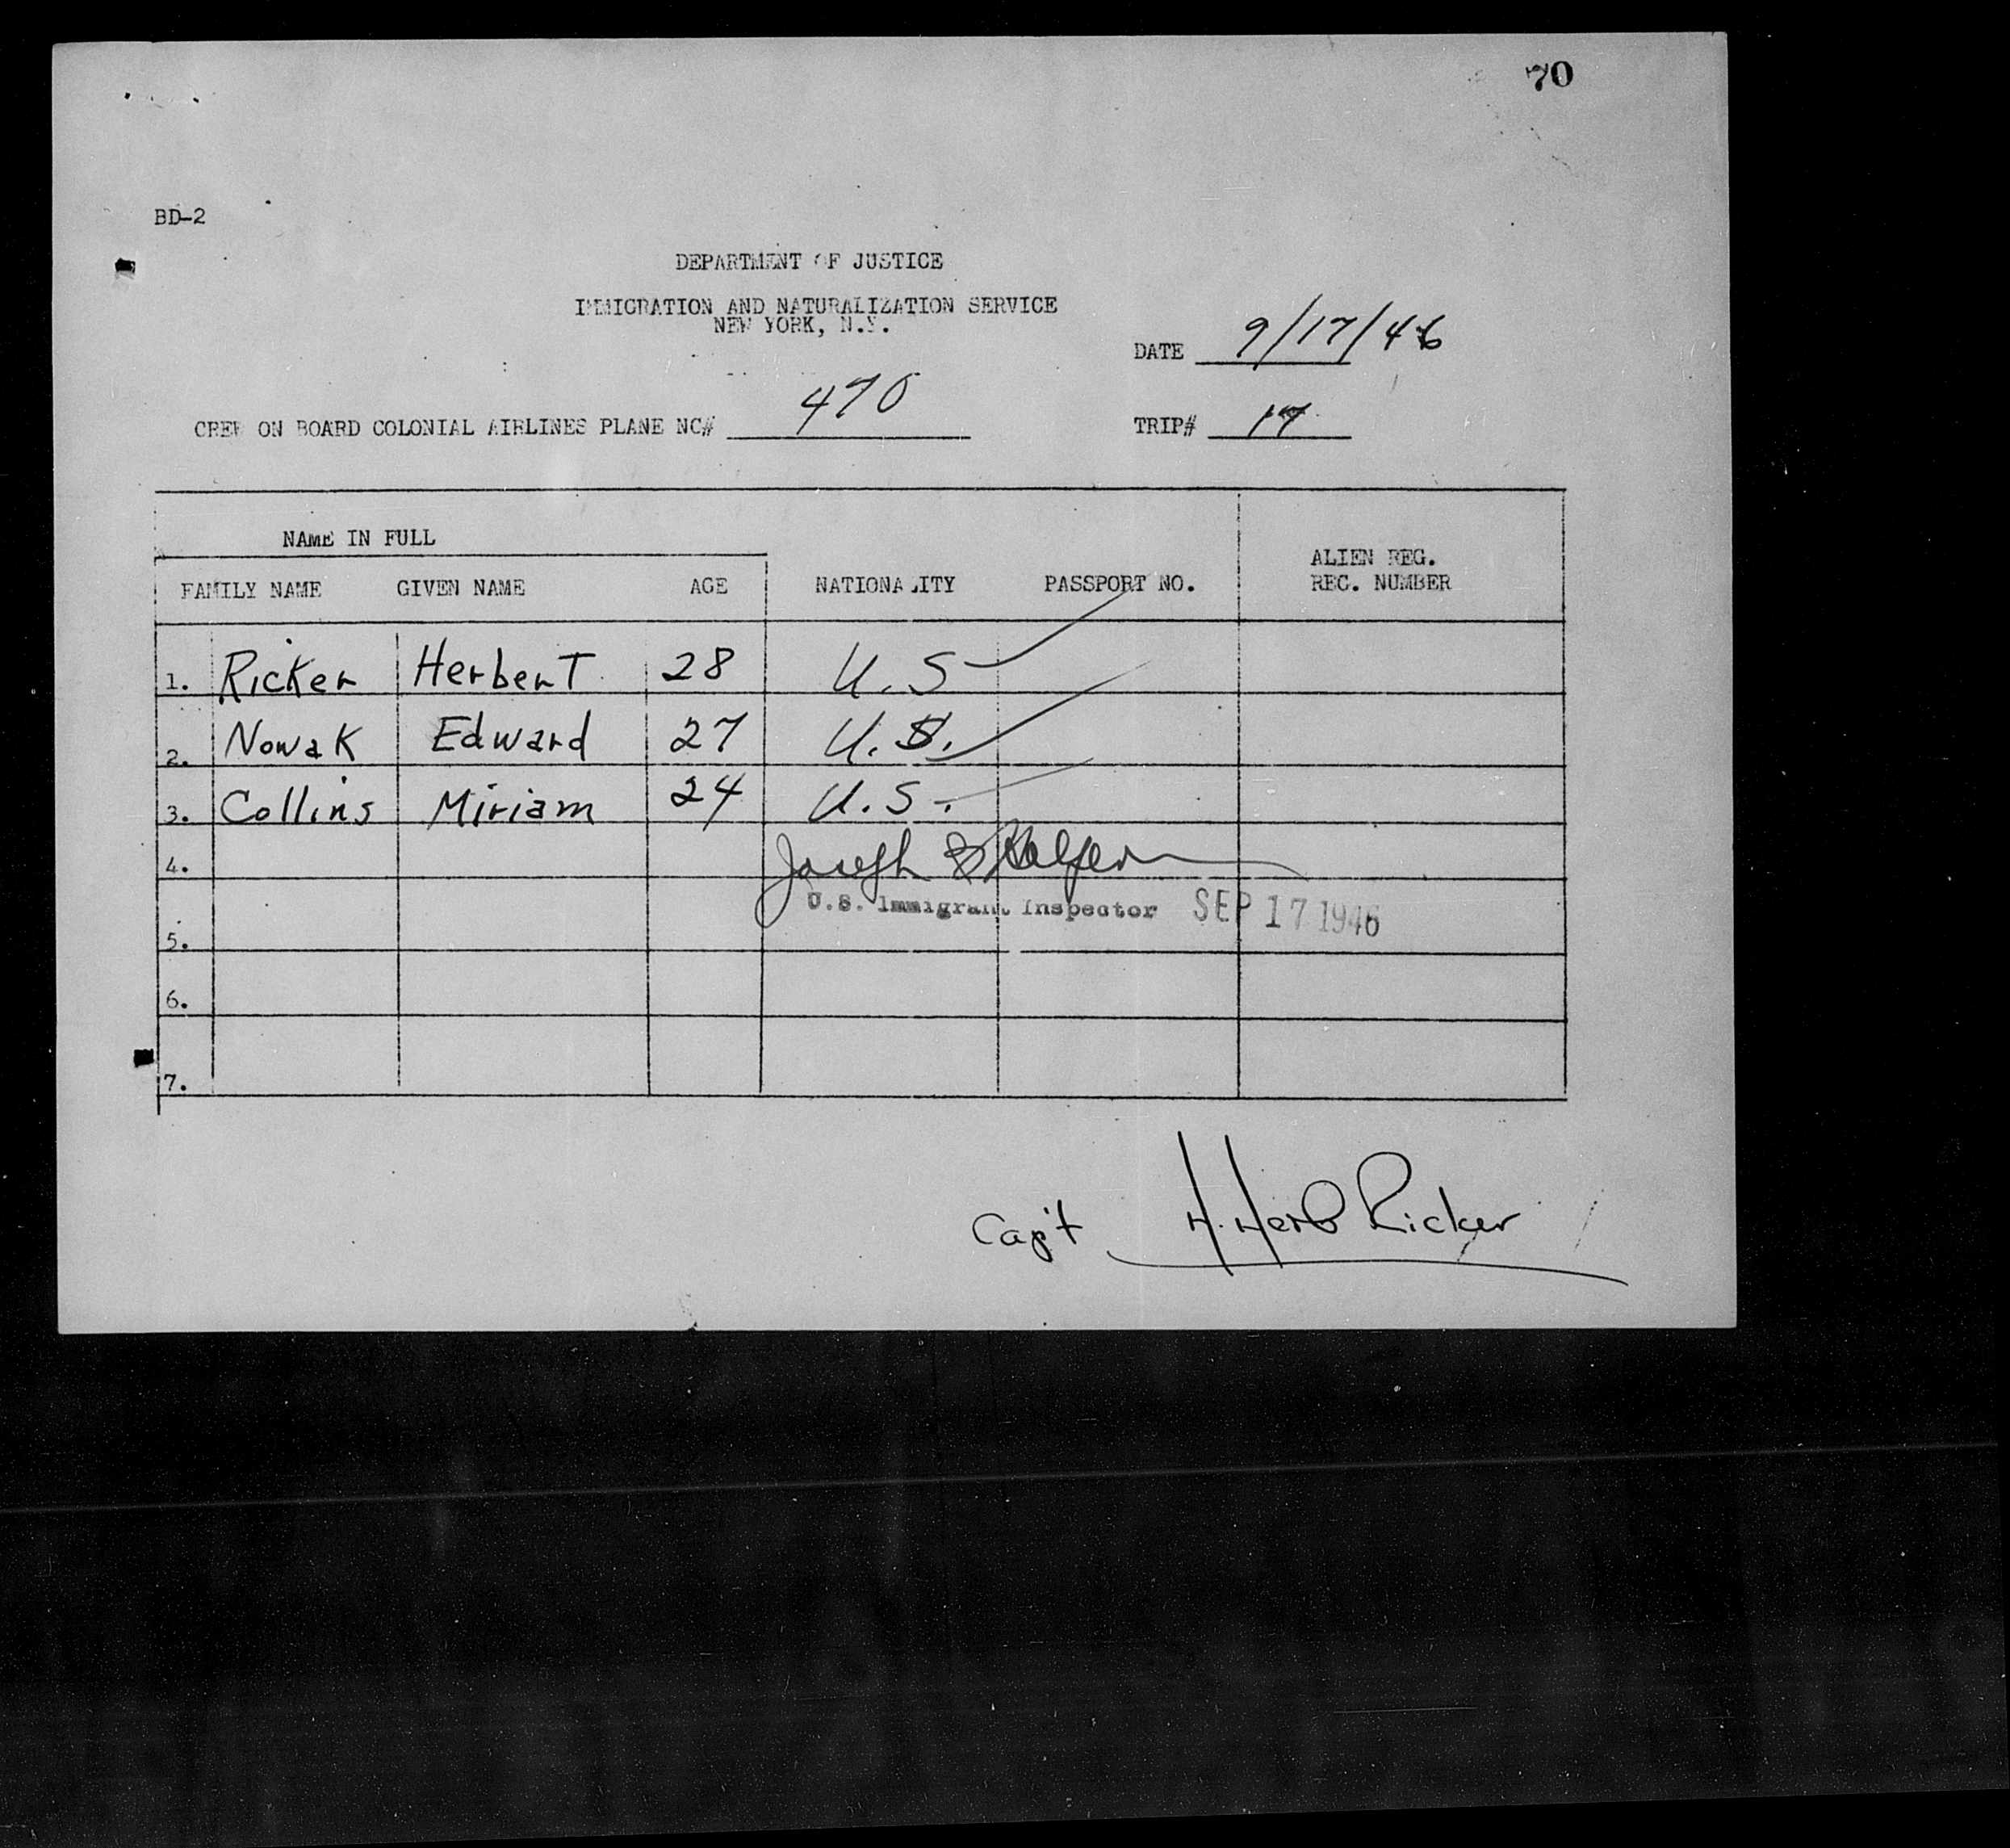 70
BD-2
DEPARTMENT OF JUSTICE
IMMIGRATION AND NATURALIZATION SERVICE
NEW YORK, N.Y.
DATE 9/17/46
CREW ON BOARD COLONIAL AIRLINES PLANE NC# 470
TRIP# 17
NAME IN FULL
FAMILY NAME GIVEN NAME AGE NATIONALITY PASSPORT NO. ALIEN REG. REC. NUMBER
1. Ricker Herbert 28 U.S
2. Nowak Edward 27 U.S.
3. Collins Miriam 24 U.S.
4. Joseph
U.S. Immigrant Inspector SEP 17 1946
5.
6.
7.
Cap't H. Herb Ricker